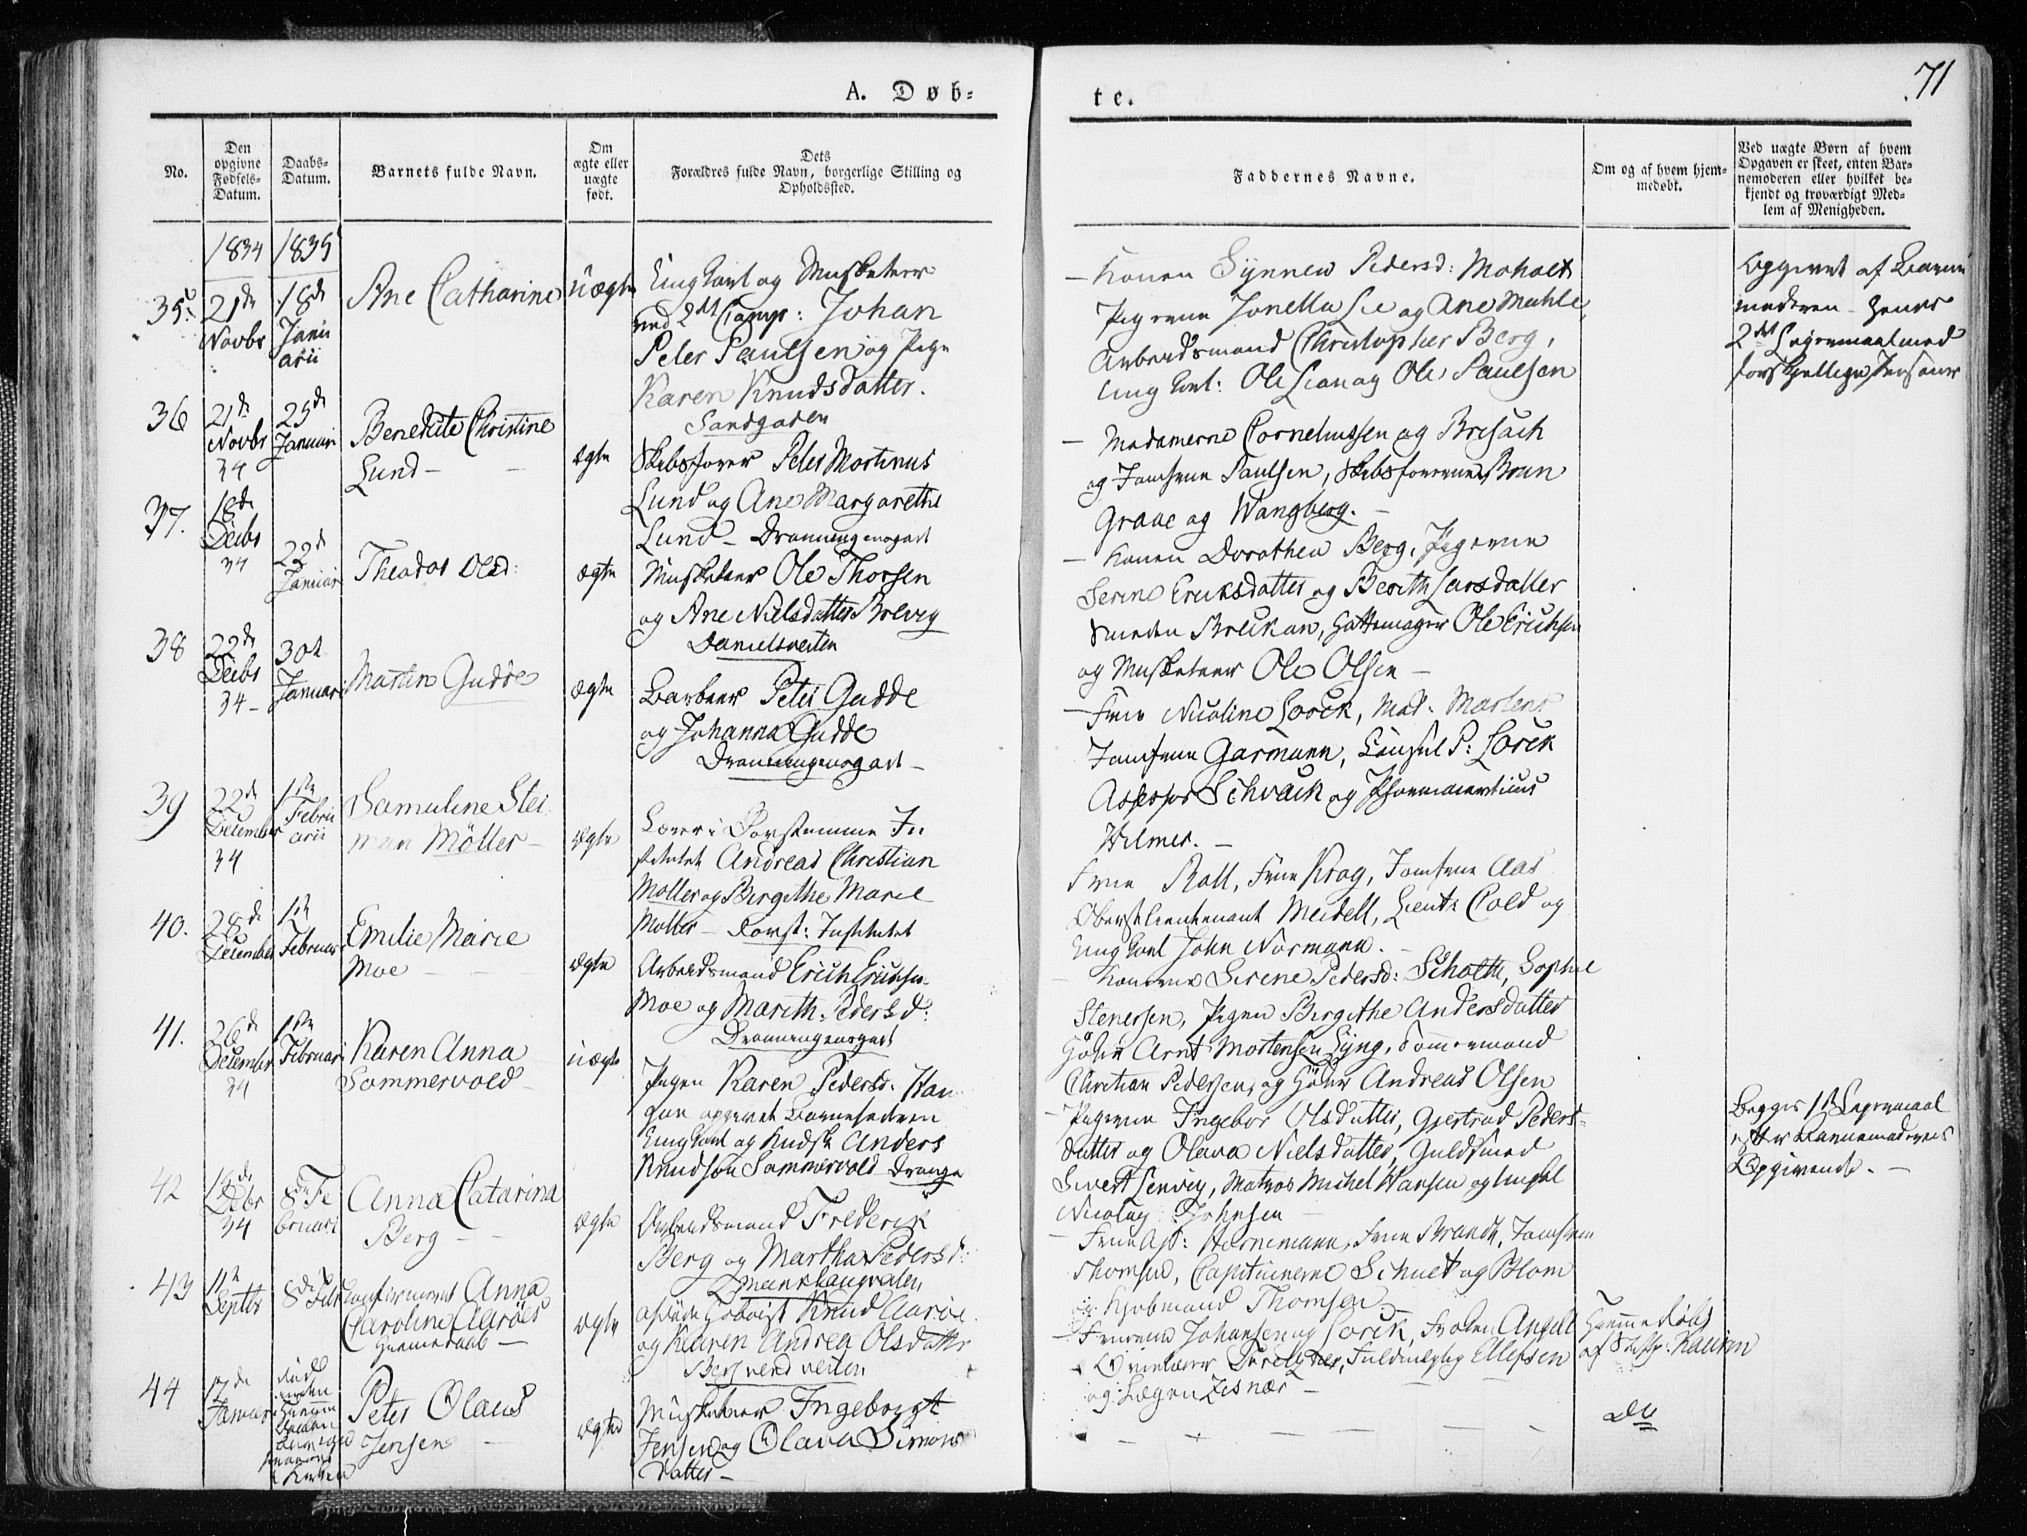 A. Døb=
te.
71
No.
Den opgivne Fødsels-Datum.
Daabs-Datum.
Barnets fulde Navn.
Om ægte eller uægte født.
Dets Forældres fulde Navn, borgerlige Stilling og Opholdssted.
Faddernes Navne.
Om og af hvem hjemmedøbt.
Ved uægte Børn af hvem
Opgaven er skeet, enten Bar-
nemoderen eller hvilket be-
kjendt og troværdigt Med-
lem af Menigheden.
1834 1835
35. 21de Novbr 18de Janu arii
Ane Catharine
uægte
Ungkarl og Musketeer
ved 2det Comp: Johan
Peter Paulsen og Pige
Karen Knudsdatter.
Sandgaden
Konen Synnew Pedersd: Moholt
Pigerne Jonetta Lie og Ane Mahle,
Arbeidsmand Christopher Berg,
Ungkarl: Ole Lian og Ole Paulsen
Opgivet af Barne
moderen
2det Leiermaal med
forskjellige Personer
36 21de Novbr 34 25de Januari
Benedicte Christine
Lund
ægte
Skibsfører Peter Martinus
Lund og Ane Margarethe
Lund - Dronningensgade
Madamerne Corneliussen og Brisach
og Jomfrue Paulsen, Skibsførerne Brun
Graae og Wangberg.
37. 18de Decbr 34 22de Januar
Theodor Olsd:
ægte
Musketeer Ole Thorsen
og Ane Nielsdatter Brevig
Danielsveiten
Konen Dorothea Berg, Pigerne
Serine Ericksdatter og Berith Larsdatter
Ole Erichsen
og Musketeer Ole Olsen
38 22de Decbr 34 30te Januari
Martin Gudde
ægte
Barbeer Peter Gudde
og Johanna Gudde
Dronningensgade
Frue Nicoline Lorck, Mad. Martens
Jomfrue Garmann, Consul P: Lorck
Assessor Schvach og
Hilmer.
39 22de December 34 1ste Febru arii
Samuline Stei
man Möller
ægte
Lærer i Døvstumme In
stitutet Andreas Christian
Møller og Birgithe Marie
Møller - Døvst: Institutet
Frue Roll, Frue Krog, Jomfrue Aas
Oberstlieutenant Meidell, Lieut: Cold og
Ungkarl John Normann.
40. 28de December 1ste Februar
Emilie Marie
Moe
ægte
Arbeidsmand Erich Erichsen
Moe og Marith Pedersd:
Dronningensgade
Konerne Serine Pedersd: Scholtt, Sophie
Stenersen, Pigen Birgithe Andersdatter
Arnt Mortensen Lyng, Tømmermand
Christian Pedersen, og Andreas Olsen
41. 26de December 34 1ste Februari
Karen Anna
Sommervold
uægte
Pigen Karen Pedersd. Han
gen opgivet Barnefaderen
Ungkarl og Kudsk Anders
Knudson Sommervold
Pigerne Ingebor Olsdatter, Gjertrud Peders-
datter og Olava Nielsdatter, Guldsmed
Sivert Lenvig, Matros Michel Hansen og
Nicolay Johnsen
Begges 1ste Leiermaal
efter Barnemoderens
Opgivende.
42 Decbr 34 8de Fe bruari
Anna Catarina
Berg
ægte
Arbeidsmand Frederik
Berg og Martha Pedersd:
Frue Ass: Hornemann, Frue Brandt, Jomfrue
Thomsen, Capitainerne Schult og Blom
og Kjøbmand Thomsen
43 11te Septbr 8de Febr
Anna
Caroline Aarøes
Hjemmedaab
ægte
afdøde Knud Aarøe
og Karen Andrea Olsdatter
Fruerne Johansen og Lorck, Frøken Angell
Fuldmægtig Ellefsen
og Lægen Zesnær
Hjemmedøbt
af Kauren
44 17de Januar
Peter Olaus
Jensen
ægte
Musketeer Ingebrigt
Jensen og Olava Simons
datter
do